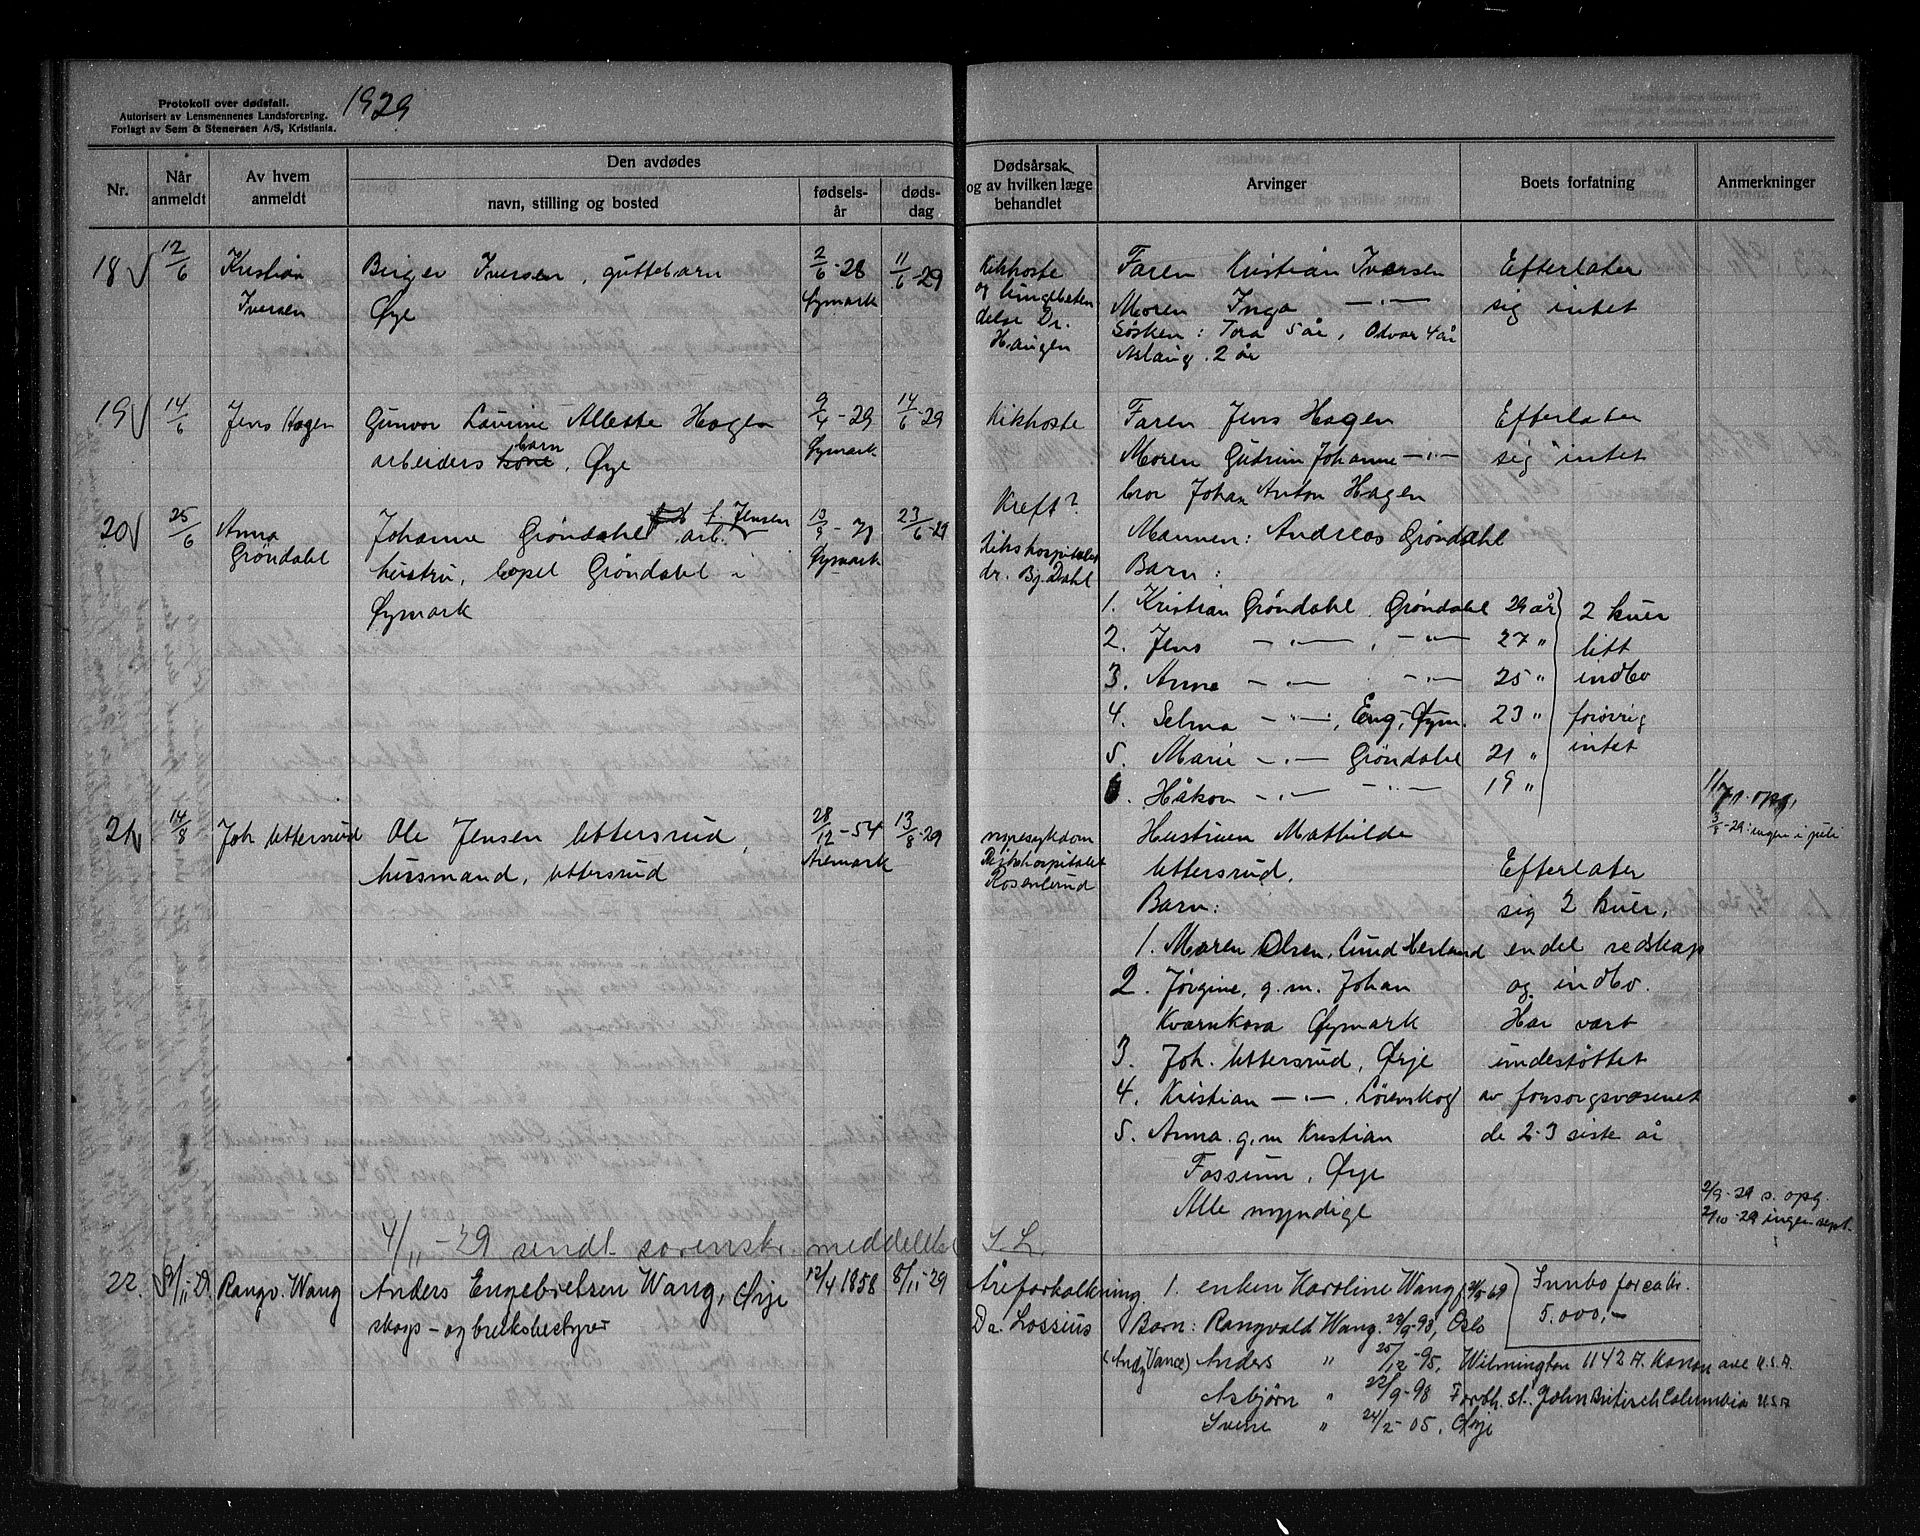 Protokoll over dødsfall.
Autorisert av Lensmennenes Landsforening.
Forlagt av Sem & Stenersen A/S, Kristiania.
1929
Nr.
Når anmeldt
Av hvem anmeldt
Den avdødes
navn, stilling og bosted
fødsels-år
døds-dag
Dødsårsak og av hvilken læge behandlet
Arvinger
Boets forfatning
Anmerkninger
18 12/6 Kristian Birger Iversen, guttebarn 2/6-28 11/6-29 Kikhoste Faren Kristian Iversen Efterlater
Iversen Ørje Øymark og lungebeten Moren Inga —„— sig intet
delse Dr. Søsken: Tora 5 år, Odvar 4 år
Haugen Aslaug. 2 år
19 14/6 Jens Hagen Gunvor Lavine Alette Hagen 9/4-29 14/6-29 Kikhoste Faren Jens Hagen Efterlater
arbeiders kone barn, Ørje Øymark Moren Gudrun Johanne —„— sig intet
bror Johan Anton Hagen
20 25/6 Anna Johanne Grøndahl f. Jensen arb. 23/6-29 Kreft? Mannen: Andreas Grøndahl
Grøndahl hustru, Grøndahl i Øymark Rikshospitalet Barn:
Øymark dr. Bj. Dahl
1. Kristian Grøndahl, Grøndahl 29 år 2 kuer
2. Jens —„— , —„— 27 „ litt
3. Anna —„— —„— 25 „ indbo
4. Selma —„—, Eng, Øym. 23 „ forøvrig
5. Marie —„— Grøndahl 21 „ intet
6. Håkon —„— —„— 19 „
3/8-29 ingen i juli
21 14/8 Joh Uttersrud Ole Jensen Uttersrud, 28/12-54 13/8-29 nyresykdom Hustruen Mathilde
husmand, Uttersrud Aremark Rikshospitalet Uttersrud. Efterlater
Barn: sig 2 kuer,
1. Maren Olsen, Lund Herland endel redskap
2. Jørgine, g.m. Johan og indbo.
Øymark Har vært
3. Joh. Uttersrud, Ørje understøttet
4. Kristian —„— Lørenskog av forsorgsvæsenet
5. Anna g.m Kristian de 2-3 siste år
Fossum, Ørje
Alle myndige
2/9-29 s. opg.
2/10-29 ingen sept.
4/11-29 sendt sorenskr. meddelelse
22. Rangv. Wang Anders Engebretsen Wang, Ørje 12/4 1858 8/11-29 Åreforkalkning 1. enken Karoline Wang Innbo for ca kr.
skogs- og bruksbestyrer Dr. Lossius Barn: Rangvald Wang. 23/9-93, Oslo 5.000,-
(Andy Vance) Anders „ 25/12-95, Wilmington 1142 A. ave U.S.A.
Asbjørn „ 22/9-98 st. John British Columbia U.S.A
Sverre „ 24/2-05, Ørje